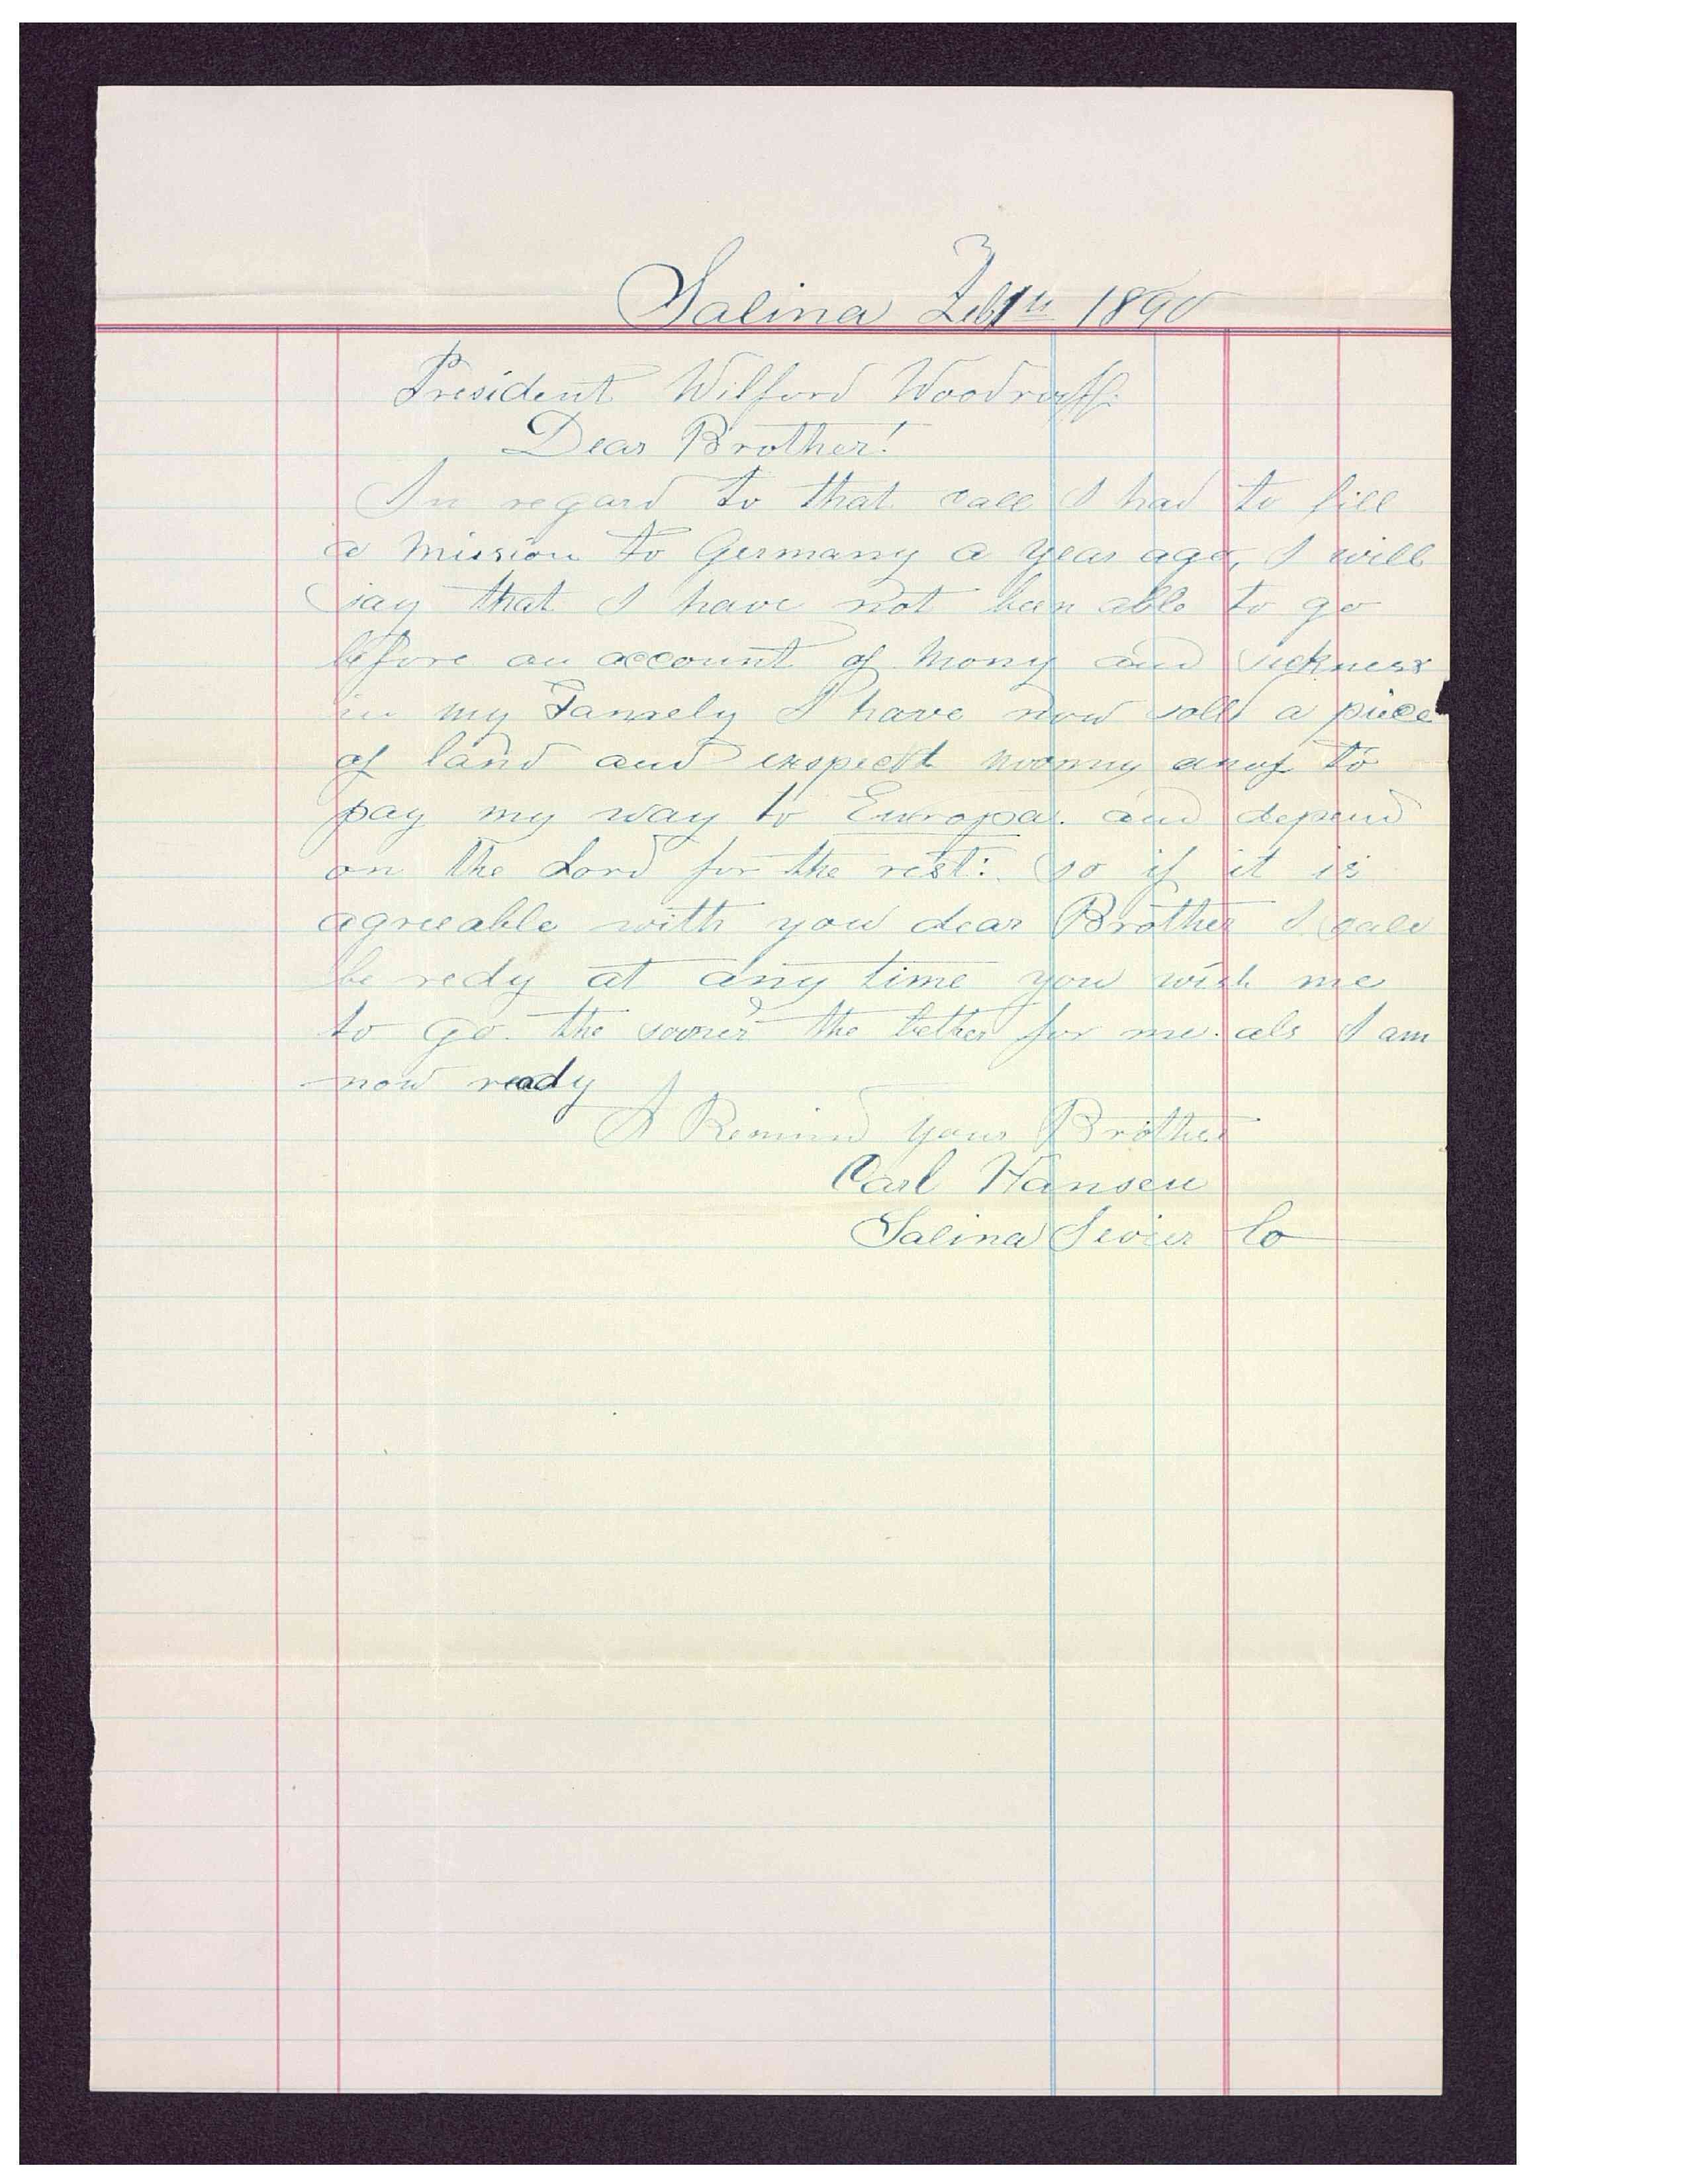 Salina Feb 1th 1890
President Wilford Woodruff.
Dear Brother!
In regard to that call I had to fill
a Mission to Germany a year ago, I will
say that I have not been able to go
before on account of Mony and sickness
in my Famely I have now solt a piece
of land and exspeckt monny anof to
pay my way to Europa. and depend
on the Lord for the rest: so if it is
agreeable with you dear Brother I
be redy at any time you wish me
to go. the sooner the bether for me. als I am
now ready
I Remind your Brother
Carl Hansen
Salina Sevier Co